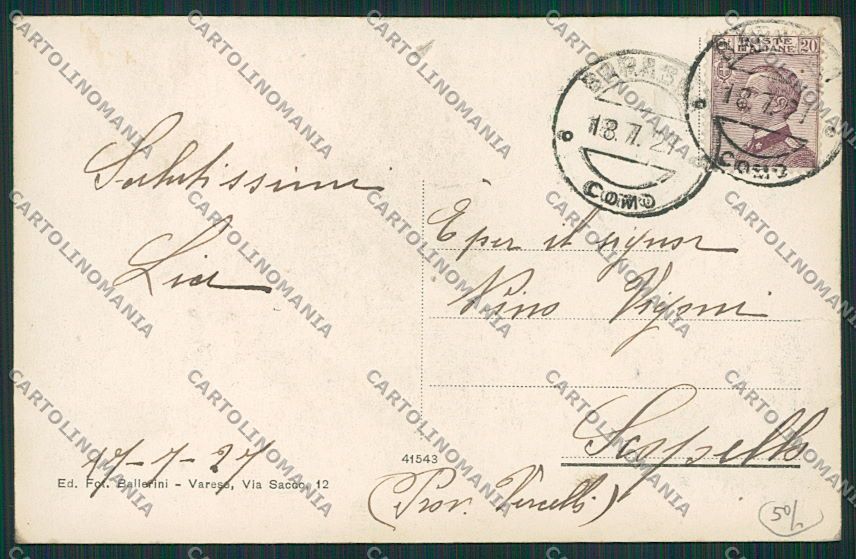 POSTE ITALIANE 20
18.7.27
COMO
18.7.27
COMO
Salutissimi
Lia
È per il signor
Nino Vigoni
Scopello
(Prov. Vercelli)
17-7-27
41543
Ed. Fot. Ballerini - Varese, Via Sacco, 12
50/
CARTOLINOMANIA